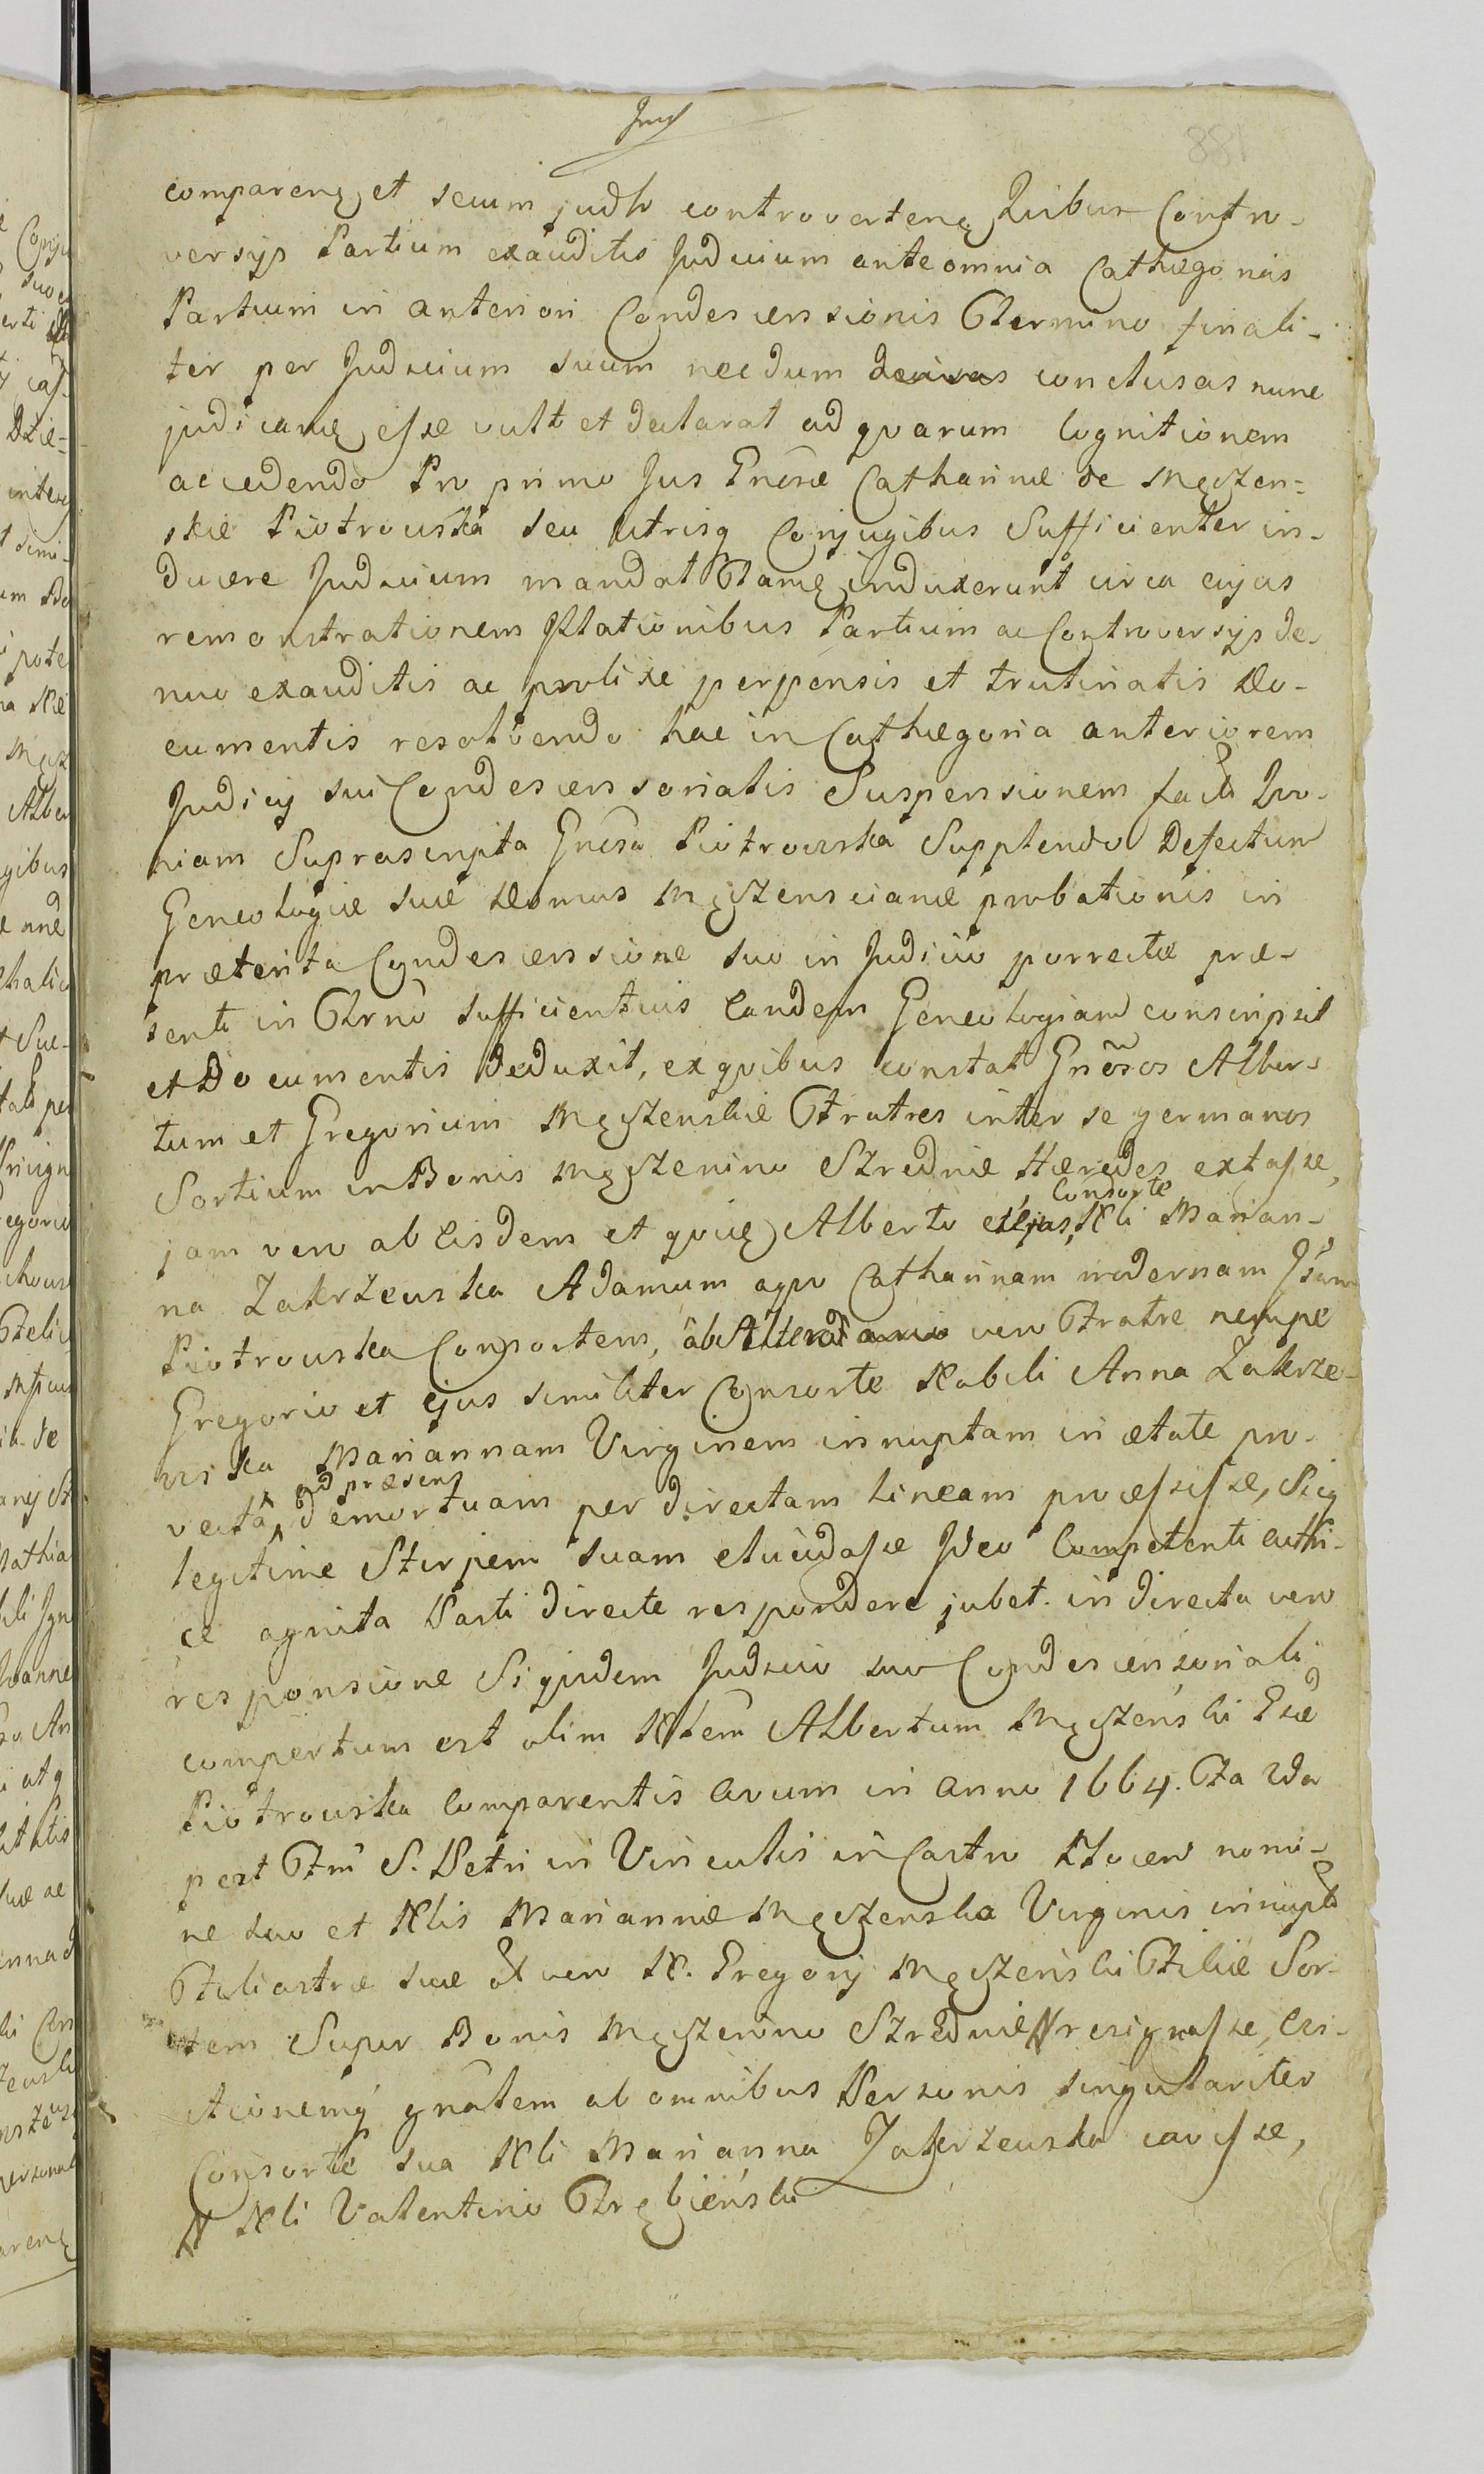 881
comparenę et secum judłr controvertenę Quibus Contro-
versijs Partium exauditis Judicium ante omnia Cathegorias
Partium in anteriori Condescensionis Termino finali-
ter per Judicium suum necdum decisas conclusas nunc
judicanę esse vult et declarat ad quarum Cognitionem
accedendo Pro primo Jus Gnosæ Catharinæ de Męczen-
skie Piotrowska seu utrisq Conjugibus Sufficienter in-
ducere Judicium mandat induxerunt circa cujus
remonstrationem Illationibus Partium ac Controversijs de-
nuo exauditis ac prolixe perpensis et trutinatis Do-
cumentis resolvendo hac in Cathegoria anteriorem
Judicij sui Condescensorialis Suspensionem Quo-
niam Suprascripta Gnosa Piotrowska Supplendo Defectum
Geneologiæ suæ Domus Męczenscianæ probationis in
præterita Condescenssione suo in Judicio porrectæ præ-
senti in Trno sufficientius Eandem Geneologiam conscripsit
et Documentis deduxit, ex quibus constat Gnosos Alber-
tum et Gregorium Męczenskie Fratres inter se germanos
Sortium in Bonis Męczenino Szrednie Hæredes extasse,
jam vero ab Eisdem et quidę Alberto ejus, Consorte Nli Marian-
na Zakrzewska Adamum aquo Catharinam modernam Jsam
Piotrowska Consortem, ab vero Fratre nempe
Gregorio et ejus similiter Consorte Nobili Anna Zakrze-
wska Mariannam Virginem innuptam in ætate pro-
vecta, ad præsens demortuam per directam Lineam processisse, Sicq
legitime Stirpem suam elucidasse Ideo Competenti
ce agnita Parti directe respondere jubet. in directa vero
responsione Siquidem Judicio suo Condescensoriali
compertum est olim Nlem Albertum Męczenski Gsæ
Piotrowska Comparentis Avum in Anno 1664. Fa 2da
post Ftm S. Petri in Vinculis in Castro nomi-
ne suo et Nlis Mariannæ Męczenska Virginis innuptæ
Filiastræ suæ vero N. Gregorij Męczenski Filiæ Sor-
tem Super Bonis Męczenino Szrednie # resignasse, Evi-
ctionemq gnalem ab omnibus Personis singulariter
Consorte sua Nli Marianna Zakrzewska cavisse,
# Nli Valentino Trębienski